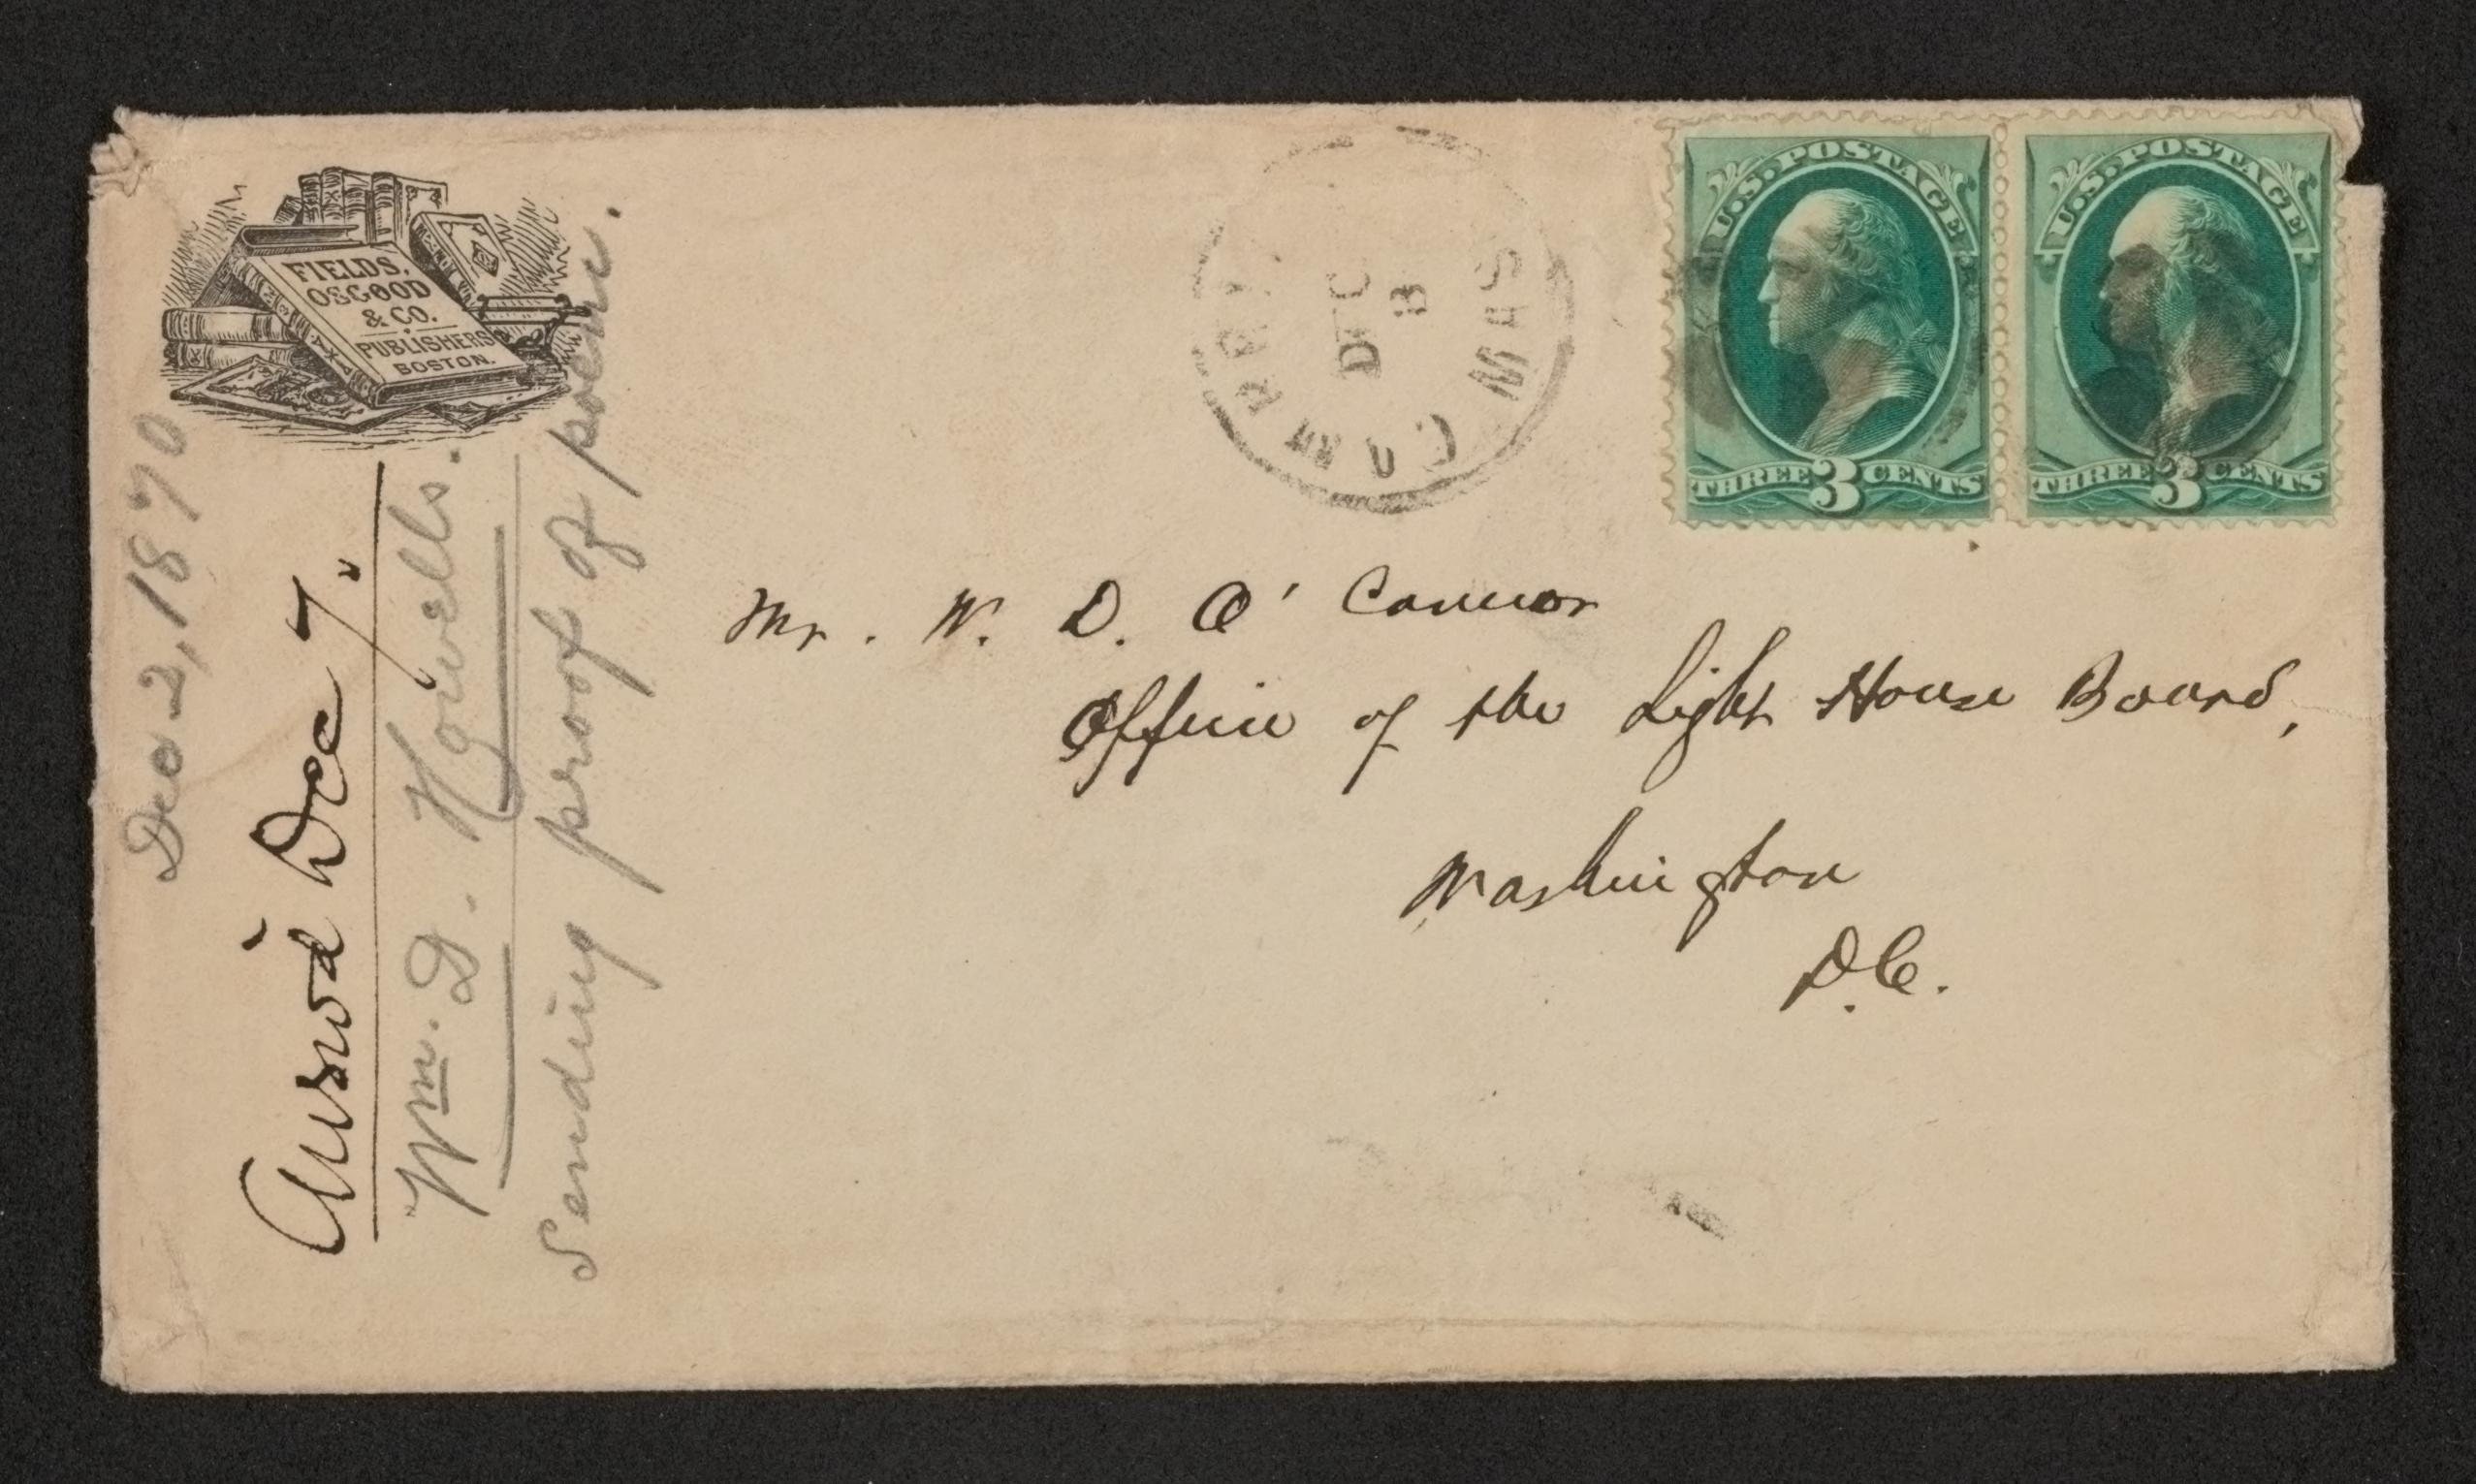 FIELDS,
OSGOOD
& CO.
PUBLISHERS
BOSTON.
DEC
3
MAS
U.S. POSTAGE
THREE 3 CENTS
U.S. POSTAGE
THREE 3 CENTS
Mr. W. D. O'Connor
Office of the Light House Board,
Washington
D.C.
Dec 2, 1870
Answd Dec 7.
Wm. D. Howells.
Sending proof of poem.